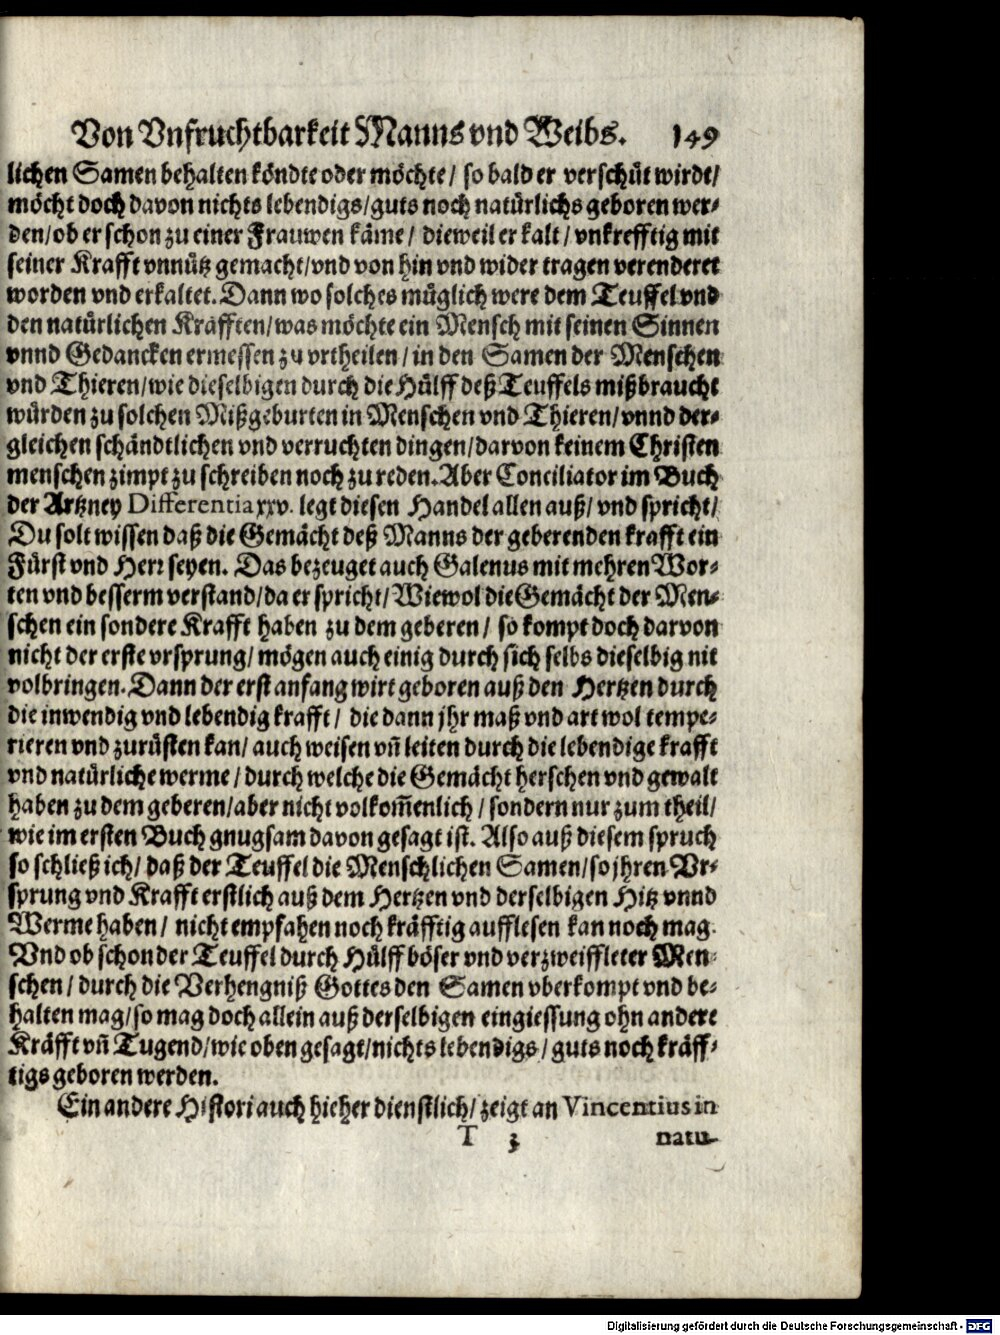 Von Vnfruchtbarkeit Manns vnd Weibs. 149
lichen Samen behalten köndte oder möchte/ so bald er verschüt wirdt/
möcht doch davon nichts lebendigs/guts noch natürlichs geboren wer-
den/ob er schon zu einer Frauwen käme/ dieweil er kalt/vnkrefftig mit
seiner Krafft vnnütz gemacht/vnd von hin vnd wider tragen verenderet
worden vnd erkaltet. Dann wo solches müglich were dem Teuffel vnd
den natürlichen Kräfften/was möchte ein Mensch mit seinen Sinnen
vnnd Gedancken ermessen zu vrtheilen/in den Samen der Menschen
vnd Thieren/wie dieselbigen durch die Hülff deß Teuffels mißbraucht
würden zu solchen Mißgeburten in Menschen vnd Thieren/vnnd der-
gleichen schändtlichen vnd verruchten dingen/darvon keinem Christen
menschen zimpt zu schreiben noch zu reden. Aber Conciliator im Buch
der Artzney Differentia xxv. legt diesen Handel allen auß/vnd spricht/
Du solt wissen daß die Gemächt deß Manns der geberenden krafft ein
Fürst vnd Herr seyen. Das bezeuget auch Galenus mit mehren Wor-
ten vnd besserm verstand/da er spricht/Wiewol die Gemächt der Men-
schen ein sondere Krafft haben zu dem geberen/ so kompt doch darvon
nicht der erste vrsprung/ mögen auch einig durch sich selbs dieselbig nit
volbringen. Dann der erst anfang wirt geboren auß den Hertzen durch
die inwendig vnd lebendig krafft/ die dann jhr maß vnd art wol tempe-
rieren vnd zurüsten kan/ auch weisen vn̄ leiten durch die lebendige krafft
vnd natürliche werme/durch welche die Gemächt herschen vnd gewalt
haben zu dem geberen/aber nicht volkom̄enlich/sondern nur zum theil/
wie im ersten Buch gnugsam davon gesagt ist. Also auß diesem spruch
so schließ ich/daß der Teuffel die Menschlichen Samen/so jhren Vr-
sprung vnd Krafft erstlich auß dem Hertzen vnd derselbigen Hitz vnnd
Werme haben/ nicht empfahen noch kräfftig aufflesen kan noch mag.
Vnd ob schon der Teuffel durch Hülff böser vnd verzweiffleter Men-
schen/durch die Verhengniß Gottes den Samen vberkompt vnd be-
halten mag/so mag doch allein auß derselbigen eingiessung ohn andere
Kräfft vn̄ Tugend/wie oben gesagt/nichts lebendigs/guts noch kräff-
tigs geboren werden.
Ein andere Histori auch hieher dienstlich/zeigt an Vincentius in
T 3 natu-
Digitalisierung gefördert durch die Deutsche Forschungsgemeinschaft - DFG